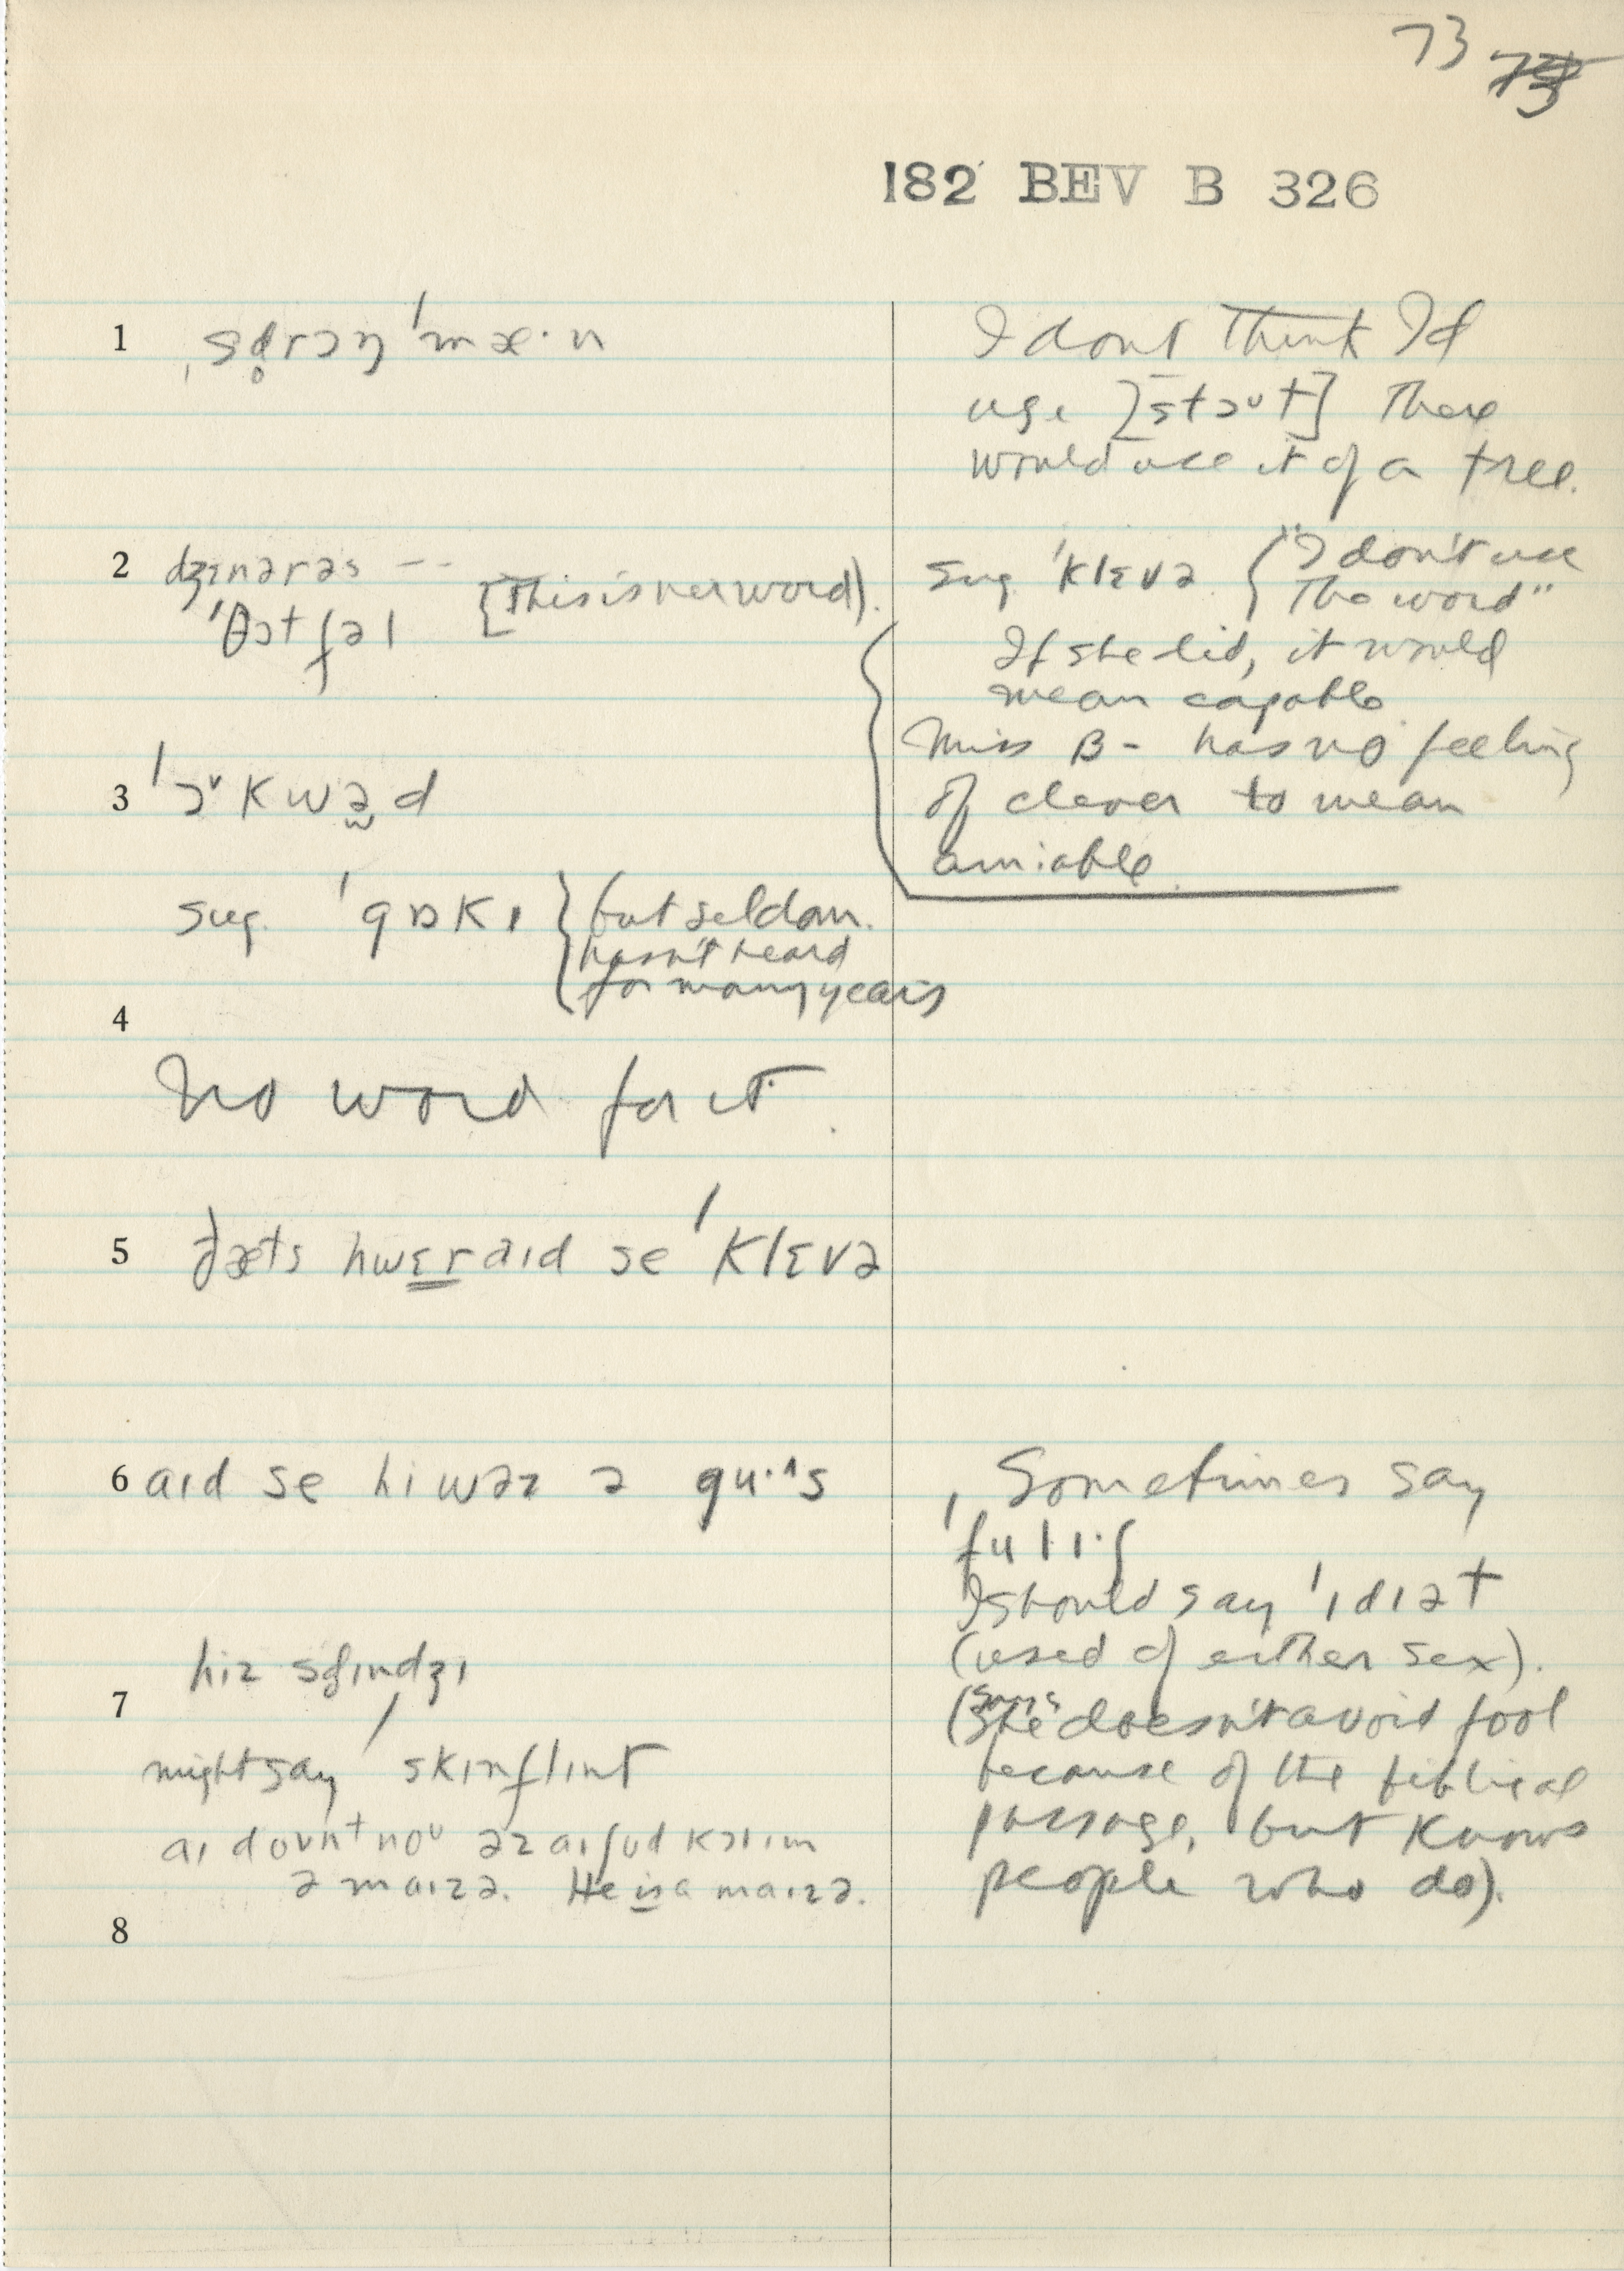 73
182 BEV B 326
1 ˌsd̥rɔŋ ˈmæ·n
I dont think I'd
use [stɔᴜt] There
would use it of a tree.
2 dʒɛnərəs --
ˈθɔtfəl [This is her word).
sug. ˈklɛvə { "I don't use
the word"
If she did, it would
mean capable
Miss B- has no feeling
of clever to mean
amiable.
3 ˈɔᵛkwə̰d
sug. ˈgɒkɪ } but seldom.
hasn't heard
for many years
4
No word for it.
5 ðæts hwɛraɪd se ˈklɛvə
6 aɪd se hiwəz ə gu·ˈs
Sometimes say
ˈfulɪ·ʃ
I should say ˈɪdɪət
(used of either sex).
(She doesn't avoid fool
because of the biblical
passage, but knows
people who do).
hiz sdɪndʒɪ
7
might say ˈskɪnflɪnt
aɪ doʊnt noʊ əz aɪʃʊd kɔlɪm
ə maɪzə. He is a maɪzə.
8